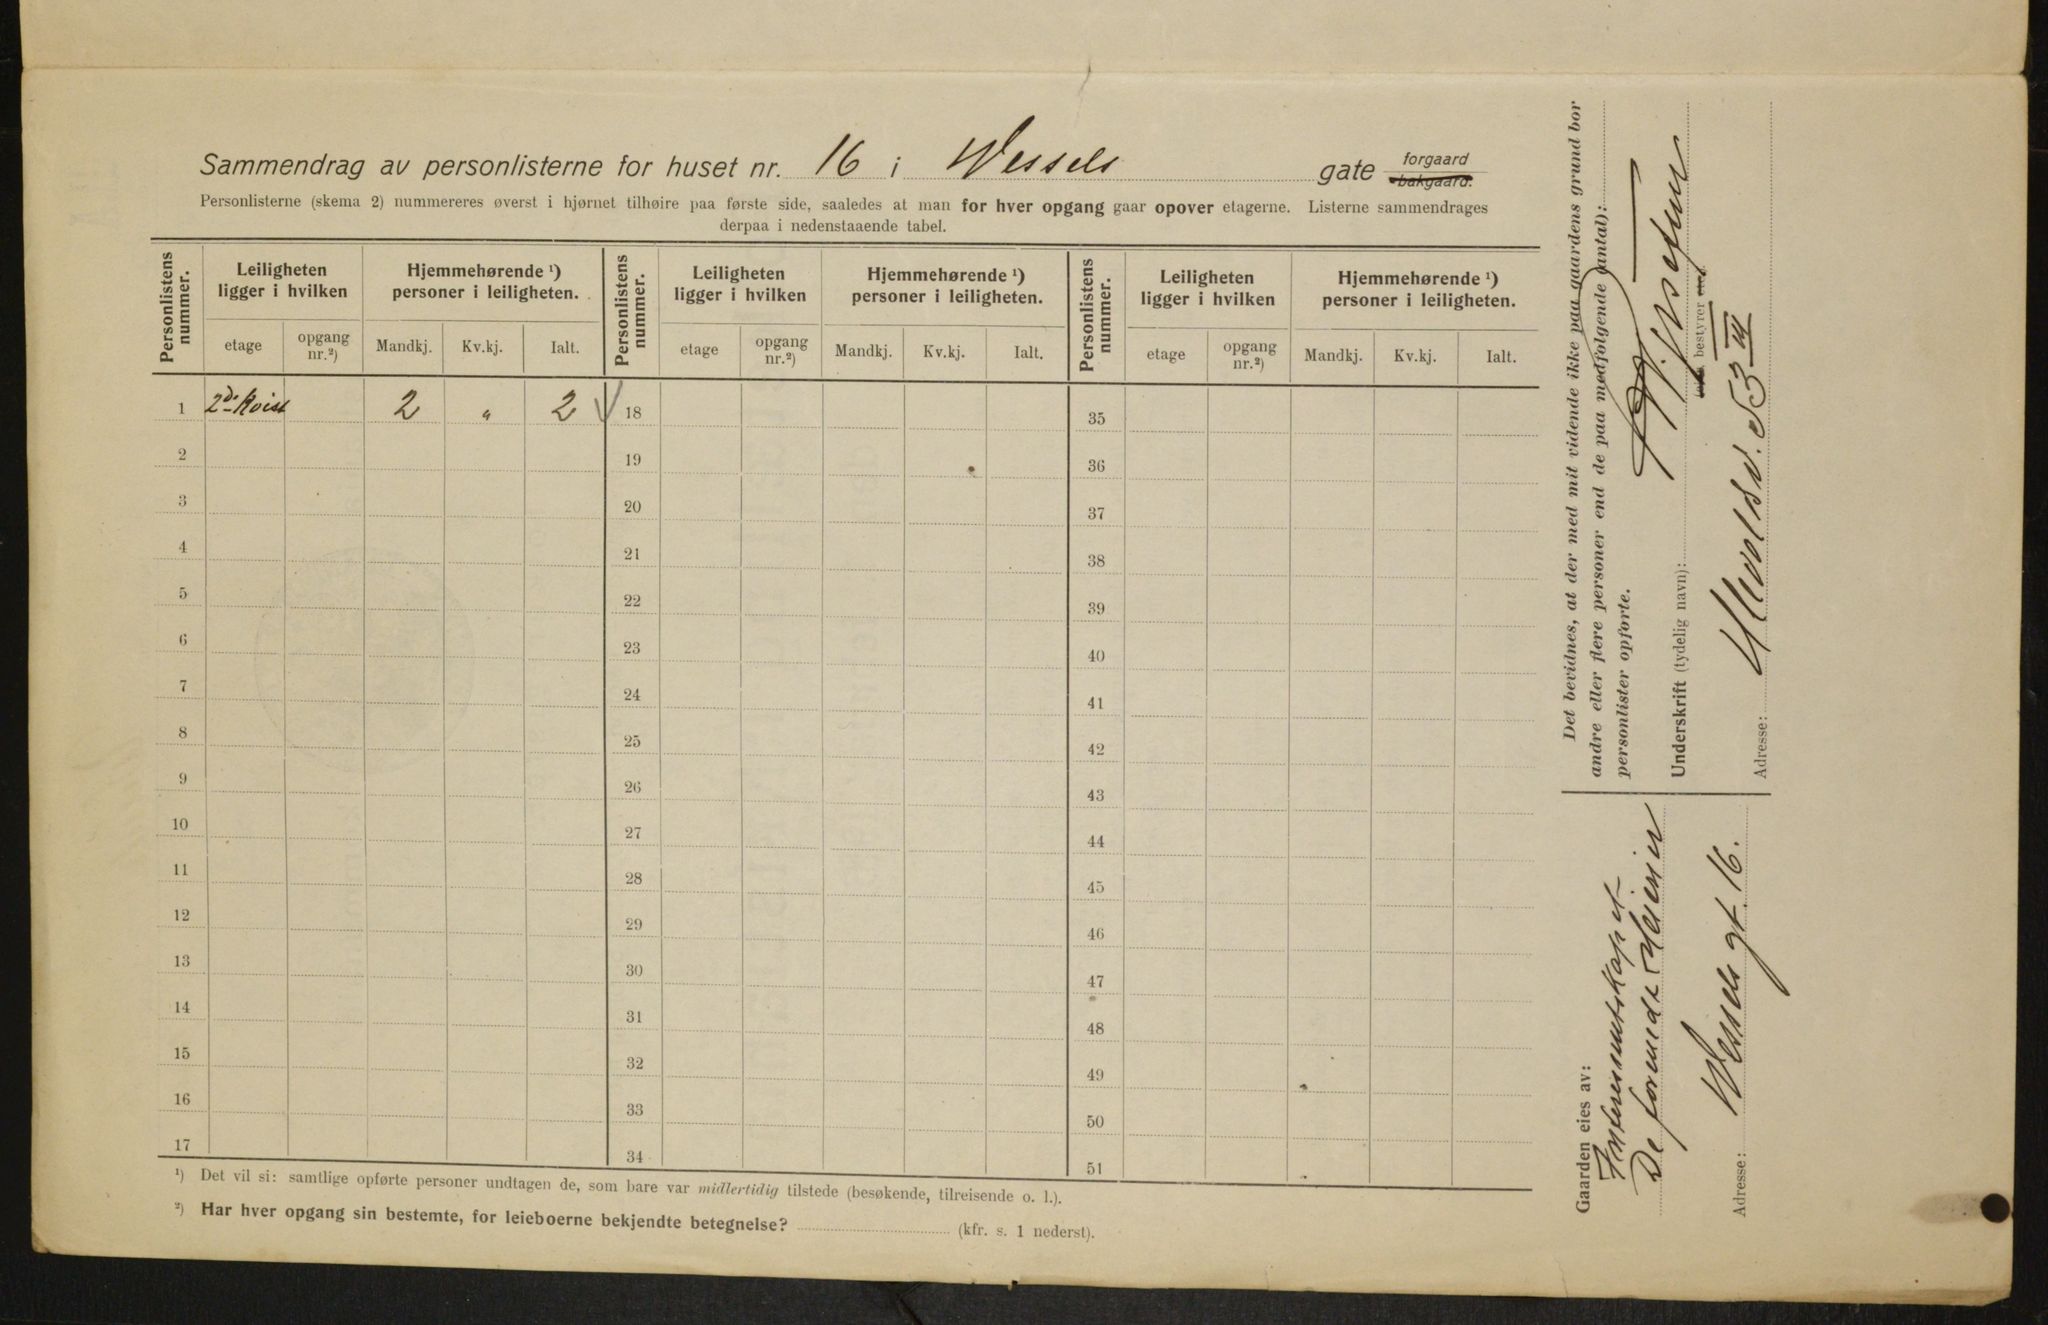 Sammendrag av personlisterne for huset nr. 16 i Wessels gate forgaard bakgaard.
Personlisterne (skema 2) nummereres øverst i hjørnet tilhøire paa første side, saaledes at man for hver opgang gaar opover etagerne. Listerne sammendrages
derpaa i nedenstaaende tabel.
Personlistens nummer. Leiligheten ligger i hvilken Hjemmehørende ¹) personer i leiligheten. Personlistens nummer. Leiligheten ligger i hvilken Hjemmehørende ¹) personer i leiligheten. Personlistens nummer. Leiligheten ligger i hvilken Hjemmehørende ¹) personer i leiligheten.
etage opgang nr.²) Mandkj. Kv.kj. Ialt. etage opgang nr.²) Mandkj. Kv.kj. Ialt. etage opgang nr.²) Mandkj. Kv.kj. Ialt.
1 2de Kvist 2 " 2 18 35
2 19 36
3 20 37
4 21 38
5 22 39
6 23 40
7 24 41
8 25 42
9 26 43
10 27 44
11 28 45
12 29 46
13 30 47
14 31 48
15 32 49
16 33 50
17 34 51
¹) Det vil si: samtlige opførte personer undtagen de, som bare var midlertidig tilstede (besøkende, tilreisende o. l.).
²) Har hver opgang sin bestemte, for leieboerne bekjendte betegnelse? (kfr. s. 1 nederst).
Det bevidnes, at der med mit vidende ikke paa gaardens grund bor
andre eller flere personer end de paa medfølgende (antal):
personlister opførte.
Underskrift (tydelig navn): bestyrer
Adresse: Ullevoldsv. 53 III
Gaarden eies av:
Interessentskapet
De forenede Meier
Adresse: Wessels gt. 16.